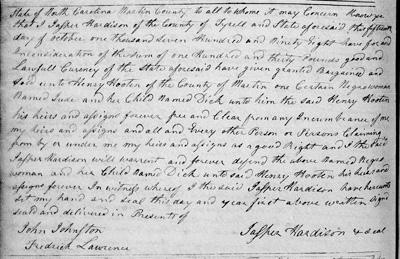 State of North Carolina Martin County to all to whome it may Concern Know ye
that I Jasper Hardison of the County of Tyrell and State aforesaid this fifteenth
day of october one thousand seven Hundred and Ninety Eight have for and
Inconsideration of the sum of one Hundred and thirty Pounds good and
Lawfull Cureney of the State aforesaid have given granted Bargained and
Sold unto Henry Hooten of the County of Martin one Certain Negrowoman
Named Jude and her Child Named Dick unto him the said Henry Hooten
his heirs and assigns forever free and Clear from any Incumbrance of me
my heirs and assigns and all and Every other Person or Persons Claiming
from by or under me my heirs and assigns as a good Right and I the said
Jasper Hardison will warrent and forever defend the above Named Negro
woman and her Child Named Dick unto said Henry Hooten his heirs and
assigns forever In witness whereof I the said Jasper Hardison have hereunto
set my hand and seal this day and year first above written Signd
seald and delivered in Presents of
John Johnston
Jasper Hardison & seal
Fredrick Lawrence